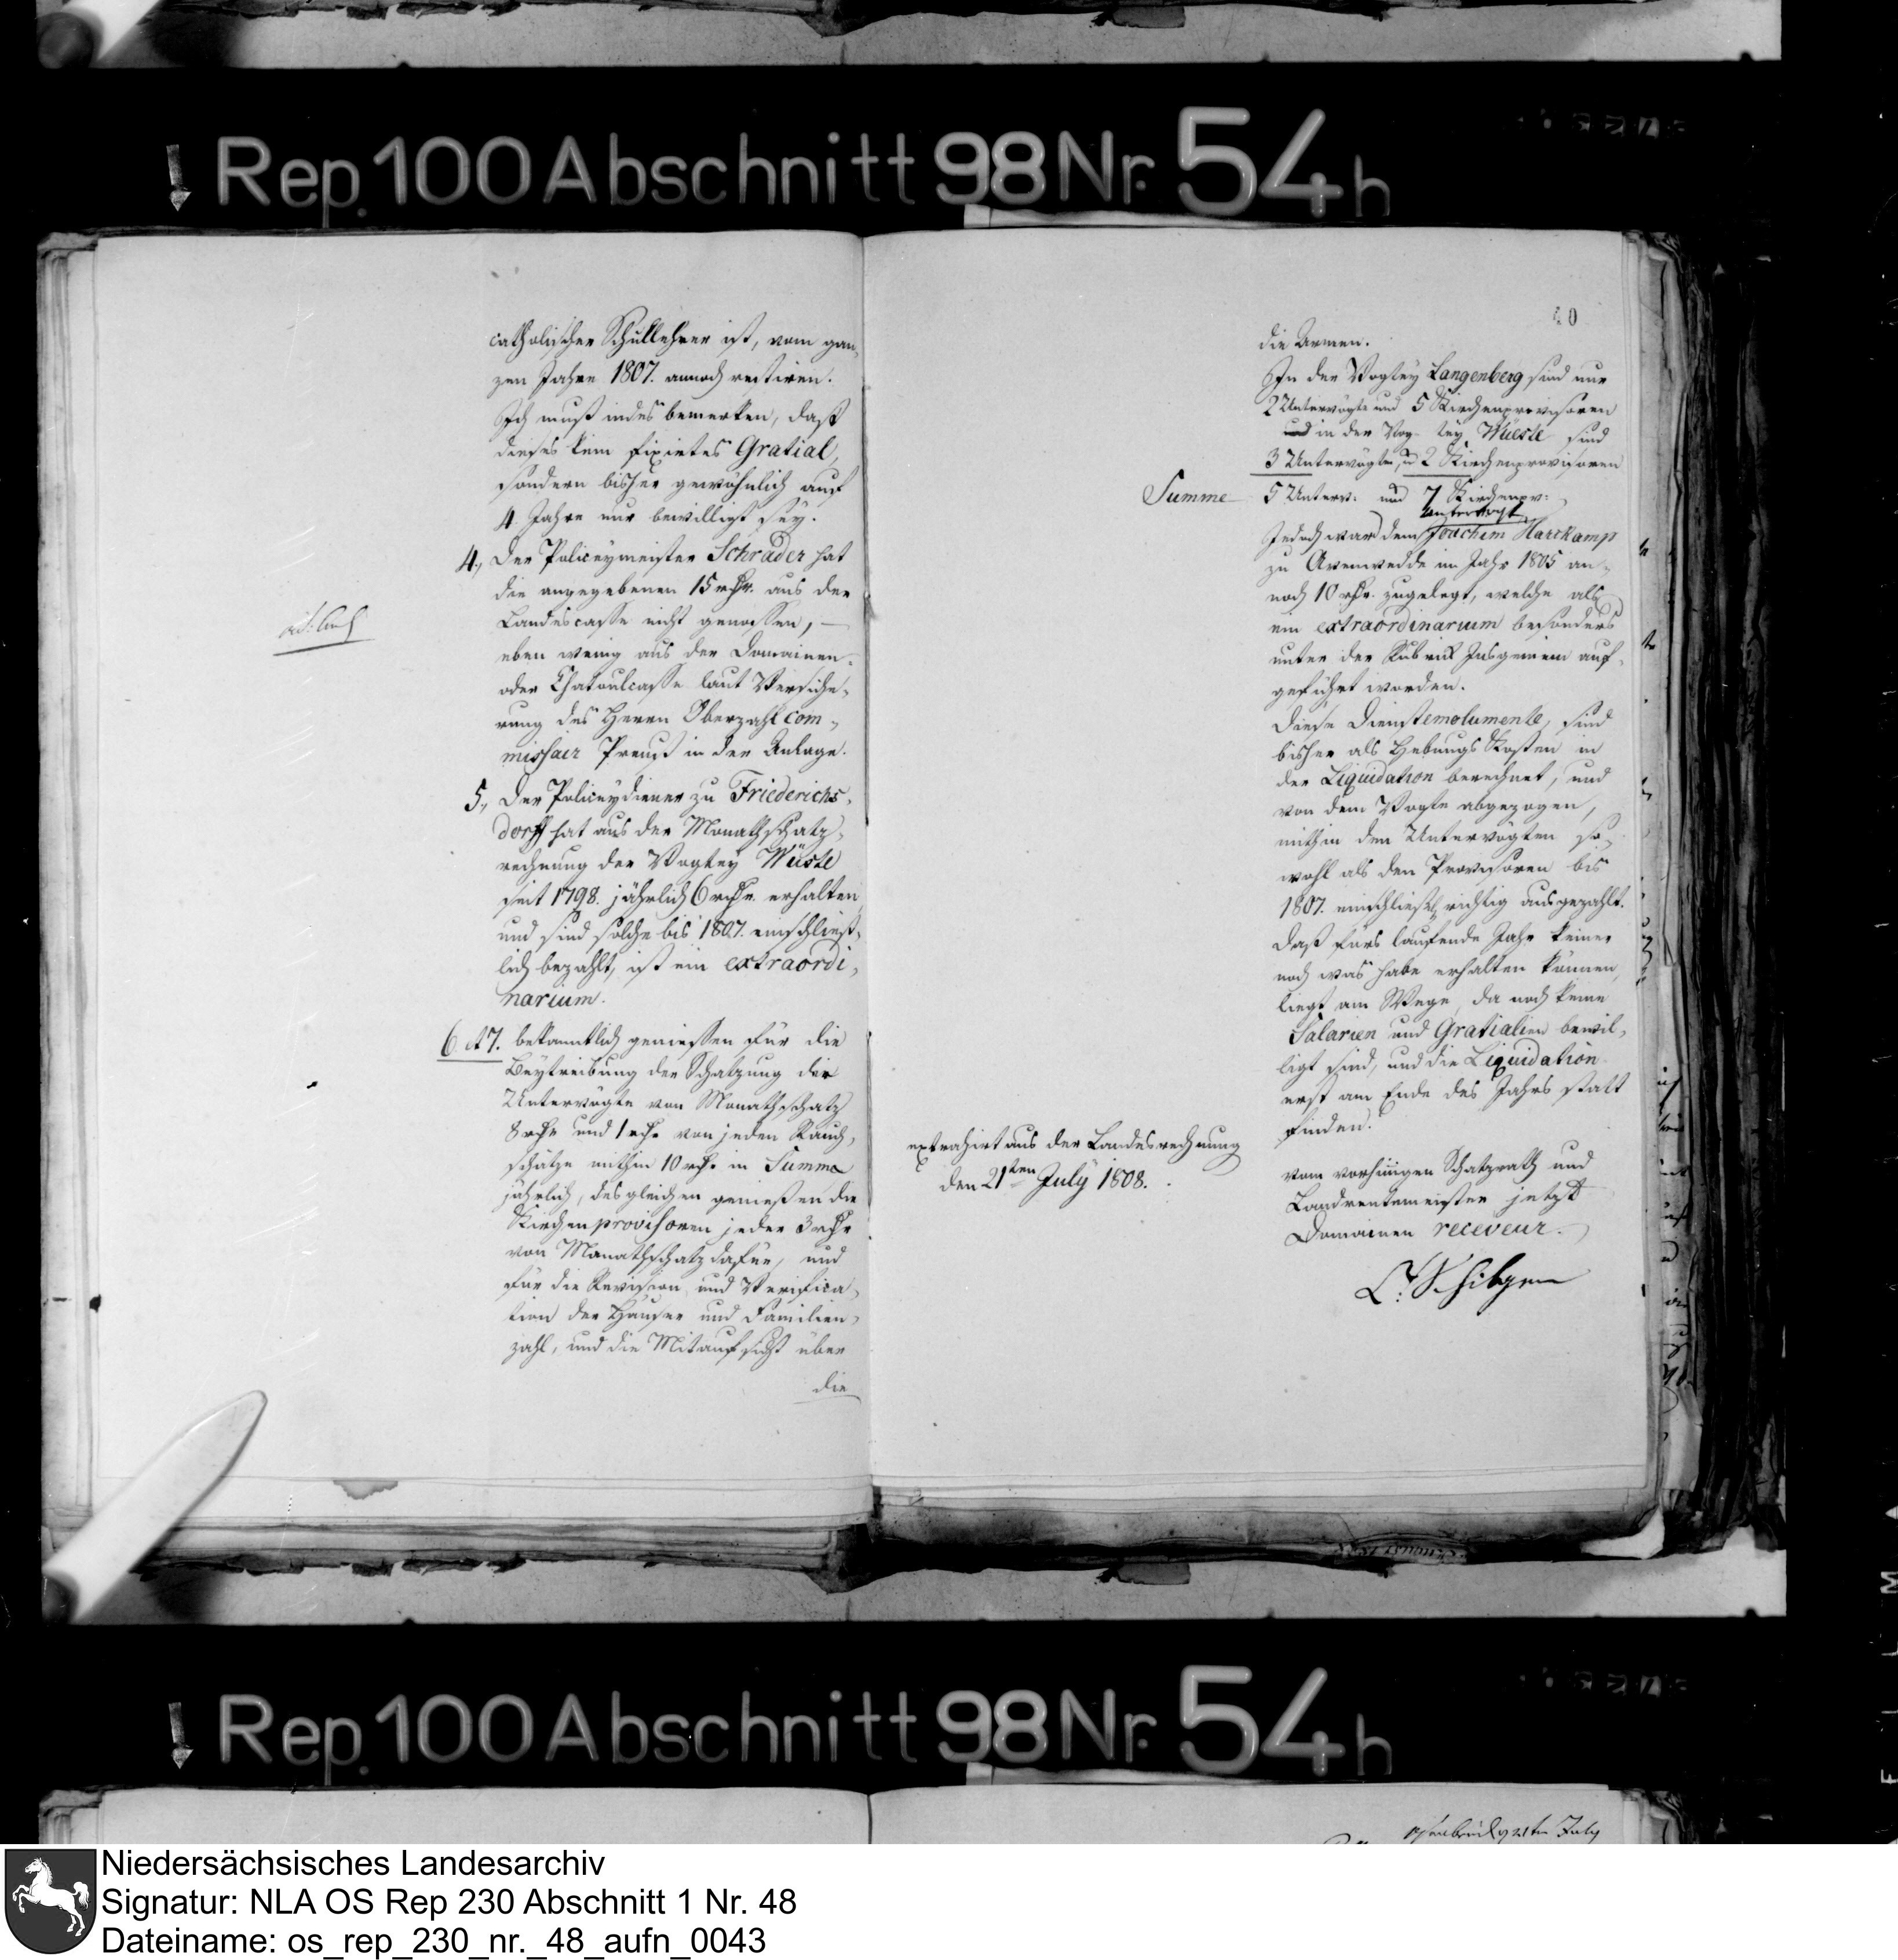 Rep. 100 Abschnitt 98 Nr. 54 h
catholischer Schullehrer ist, vom gan-
zen Jahre 1807. annoch restiren.
Ich muß indes bemerken, daß
dieses kein fixirtes Gratial,
sondern bisher gewöhnlich auf
4 Jahre nur bewilligt sey.
4., Der Policeymeister Schrader hat
die angegebenen 15 rthr. aus der
Landescasse nicht genossen, –
eben wenig aus der Domainen-
oder Chatoulcasse laut Versiche-
rung des Herrn Oberzahlcom-
missair Preuß in der Anlage.
5., Der Policeydiener zu Friederichs-
dorff hat aus der Monathschatz-
rechnung der Vogtey Wüste
seit 1798. jährlich 6 rthr. erhalten
und sind solche bis 1807. einschließ-
lich bezahlt, ist ein extraordi-
narium.
6 et 7. bekanntlich geniessen für die
Beytreibung der Schatzung die
Untervögte von Monathschatz
8 rthr und 1 rthr von jeden Rauch-
schatze mithin 10 rthr in Summa
jährlich, desgleichen genießen die
Kirchenprovisoren jeder 3 rthr
von Monathschatz dafür, und
für die Revision und Verifica-
tion der Häuser und Familien-
zahl, und die Mitaufsicht über
die
40
die Armen.
In der Vogtey Langenberg sind nur
2 Untervögte und 5 Kirchenprovisoren
und in der Vog- tey Wüeste sind
3 Untervögte, u 2 Kirchenprovisoren
Summe 5 Unterv: und 7 Kirchenpr:
Untervogt
Jedoch war dem Joachim Harckamp
zu Avenwedde im Jahr 1805 an-
noch 10 rthr. zugelegt, welche als
ein extraordinarium besonders
unter der Rubrick Insgemein auf-
geführt worden.
Diese Dienstemolumente, sind
bisher als Hebungs Kosten in
der Liquidation berechnet, und
von dem Vogte abgezogen,
mithin den Untervögten so-
wohl als den Provisoren bis
1807. einschließl. richtig ausgezahlt.
Daß fürs laufende Jahr keiner
noch was habe erhalten können,
liegt am Wege, da noch keine
Salarien und Gratialien bewil-
ligt sind, und die Liquidation
erst am Ende des Jahrs statt
finden.
extrahirt aus der Landesrechnung
den 21ten July 1808.
vom vorhinigen Schatzrath und
Landrentemeister jetzt
Domainen receveur.
Rep. 100 Abschnitt 98 Nr. 54 h
July
Niedersächsisches Landesarchiv
Signatur: NLA OS Rep 230 Abschnitt 1 Nr. 48
Dateiname: os_rep_230_nr._48_aufn_0043